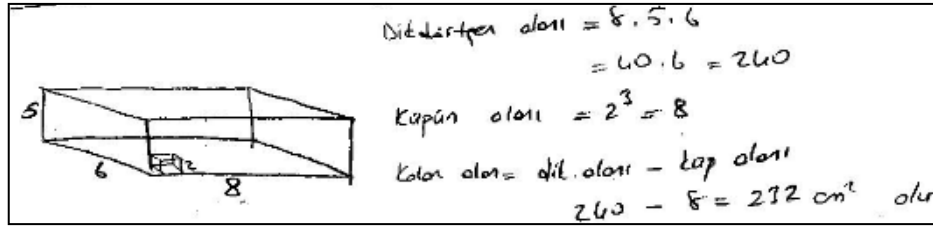 Dikdörtgen alanı = 8.5.6
= 40.6 = 240
Küpün alanı = 2³ = 8
Kalan alan = dik. alanı - küp alanı
240 - 8 = 232 cm² olur
5
6
2
8